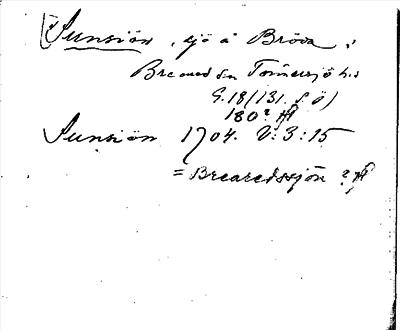 Sunsiön, sjö å Bröda,
Breared sn Tönnersjö hd
G.18(131. f ö)
180?
Sunsiön 1704. V:3:15
= Brearedssjön ?